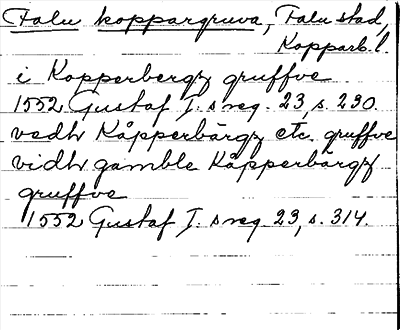 Falu koppargruva, Falu stad,
Kopparb. l.
i Kopperbergz gruffve
1552 Gustaf I. s reg. 23, s. 290.
vedh Kåpperbärgz etc. gruffve
vidh gamble Kåpperbärgz
gruffve
1552 Gustaf I. s reg 23, s. 314.